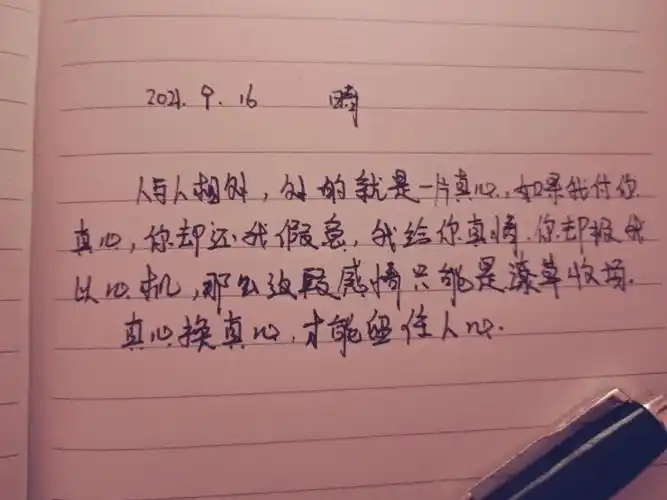 2021. 9. 16 晴
人与人相处，处的就是一片真心，如果我付你
真心，你却还我假意，我给你真情，你却报我
以心机，那么这段感情只能是潦草收场.
真心换真心，才能留住人心.